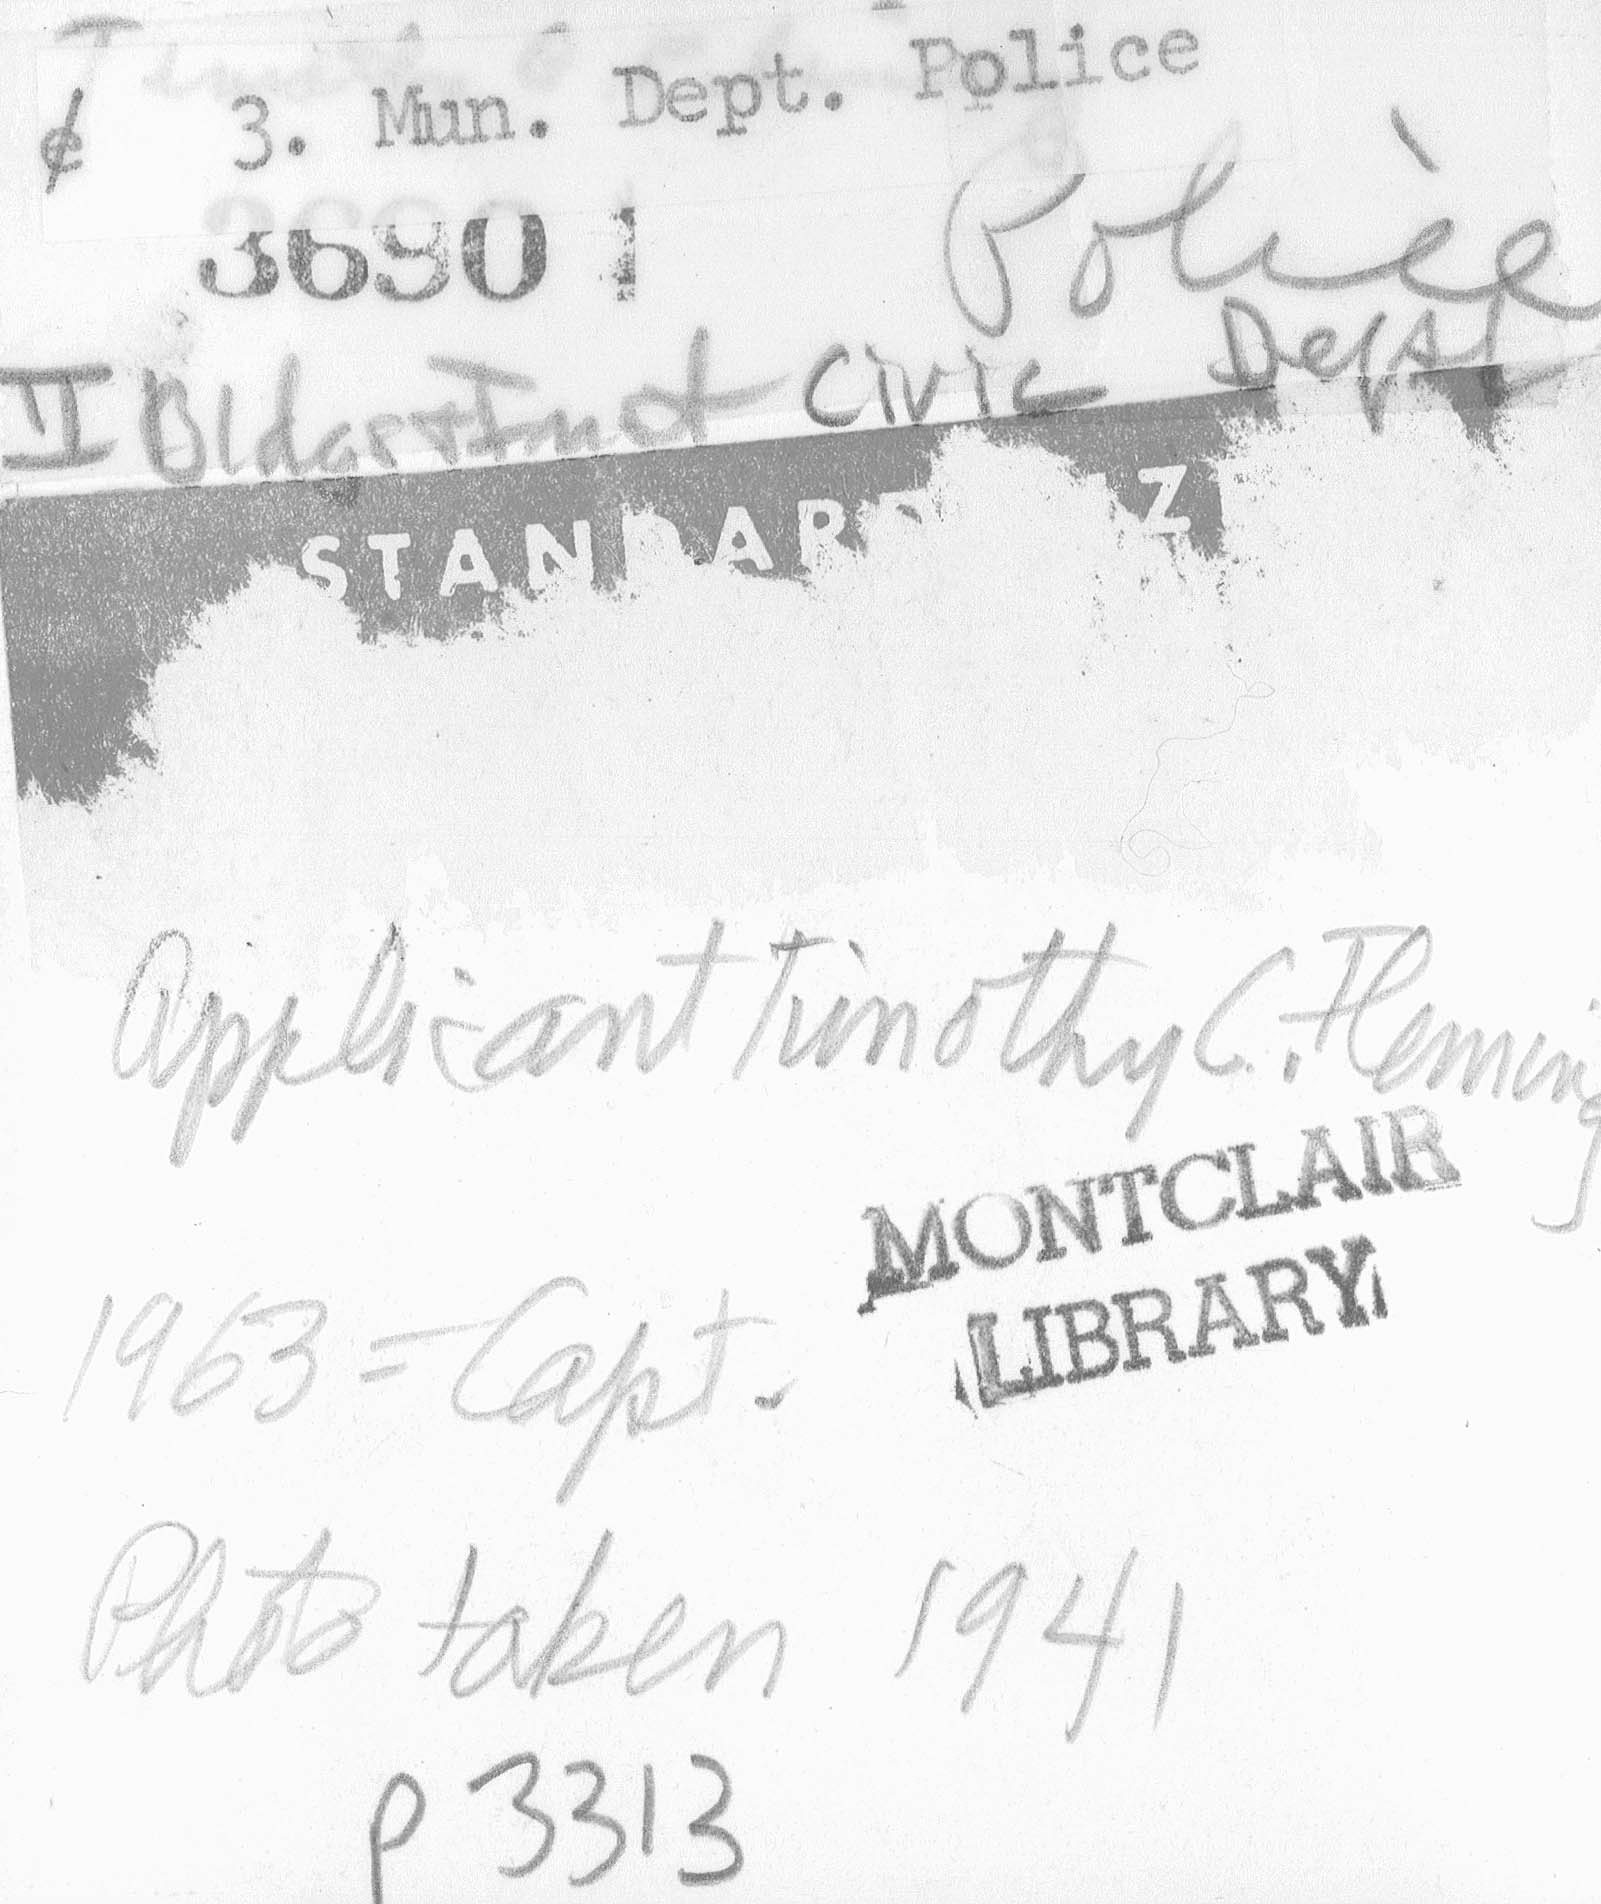 ¢ 3. Mun. Dept. Police
36901
Police
II Bldgs + Inst Civic Dept
STANDARD IZ
Applicant Timothy C. Fleming
MONTCLAIR
LIBRARY
1963 = Capt.
Photo taken 1941
p 3313